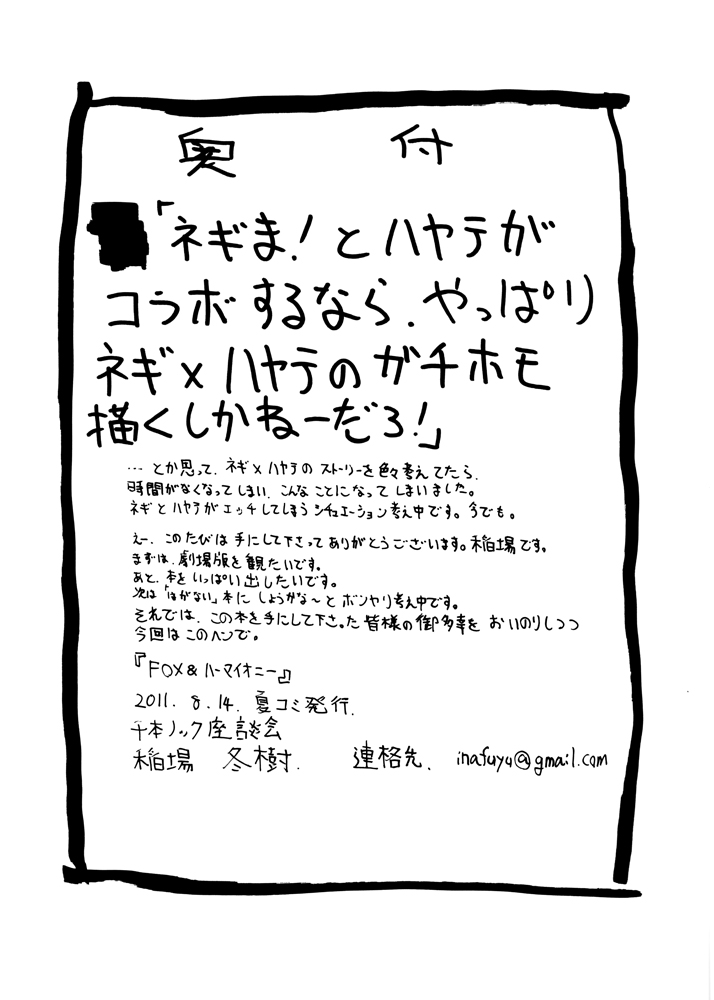 奥付
「ネギま!とハヤテが
コラボするなら、やっぱり
ネギ×ハヤテのガチホモ
描くしかねーだろ!」
…とか思って、ネギ×ハヤテのストーリーを色々考えてたら、
時間がなくなってしまい、こんなことになってしまいました。
ネギとハヤテがエッチしてしまうシチュエーション考え中です。今でも。
えー、このたびは手にして下さってありがとうございます。稲場です。
まずは、劇場版を観たいです。
あと、本をいっぱい出したいです。
次は「はがない」本にしようかな〜とボンヤリ考え中です。
それでは、この本を手にして下さった皆様の御多幸をおいのりしつつ
今回はこのヘンで。
『FOX&ハーマイオニー』
2011.8.14.夏コミ発行.
千本ノック座談会
稲場 冬樹. 連絡先. inafuyu@gmail.com